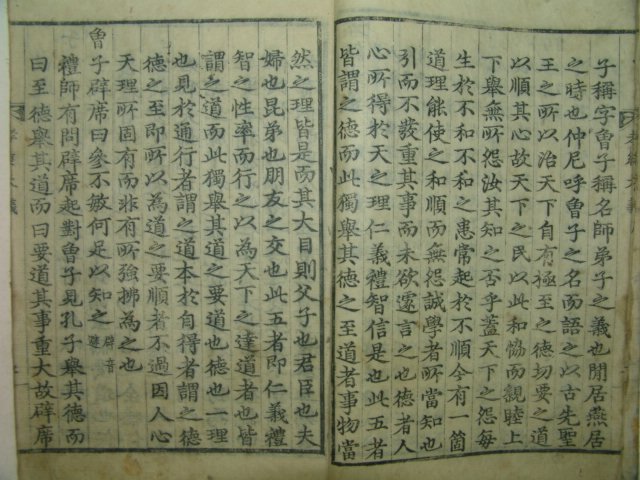 子稱字曾子稱名師弟子之義也閒居燕居
之時也仲尼呼曾子之名而語之以古先聖
王之所以治天下自有極至之德切要之道
以順其心故天下之民以此和恊而親睦上
下舉無所怨汝其知之否乎蓋天下之怨每
生於不和不和之患常起於不順今有一箇
道理能使之和順而無怨誠學者所當知也
引而不發重其事而未欲遽言之也德者人
心所得於天之理仁義禮智信是也此五者
皆謂之德而此獨舉其德之至道者事物當
然之理皆是而其大目則父子也君臣也夫
婦也昆弟也朋友之交也此五者即仁義禮
智之性率而行之以為天下之達道者也皆
謂之道而此獨舉其道之要道也德也一理
也見於通行者謂之道本於自得者謂之德
德之至即所以為道之要順者不過因人心
天理所固有而非有所強拂為之也
曾子辟席曰參不敏何足以知之辟音避
禮師有問辟席起對曾子見孔子舉其德而
曰至德舉其道而曰要道其事重大故辟席